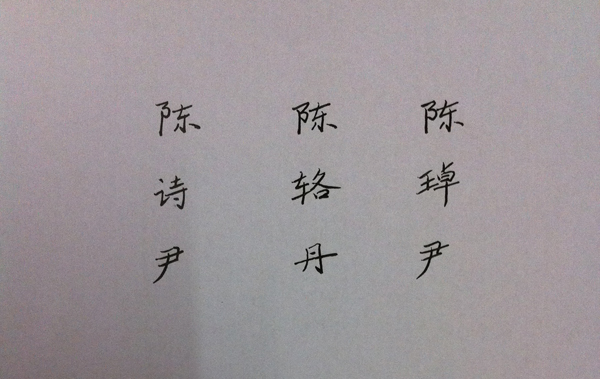 陈诗尹
陈辂丹
陈琸尹